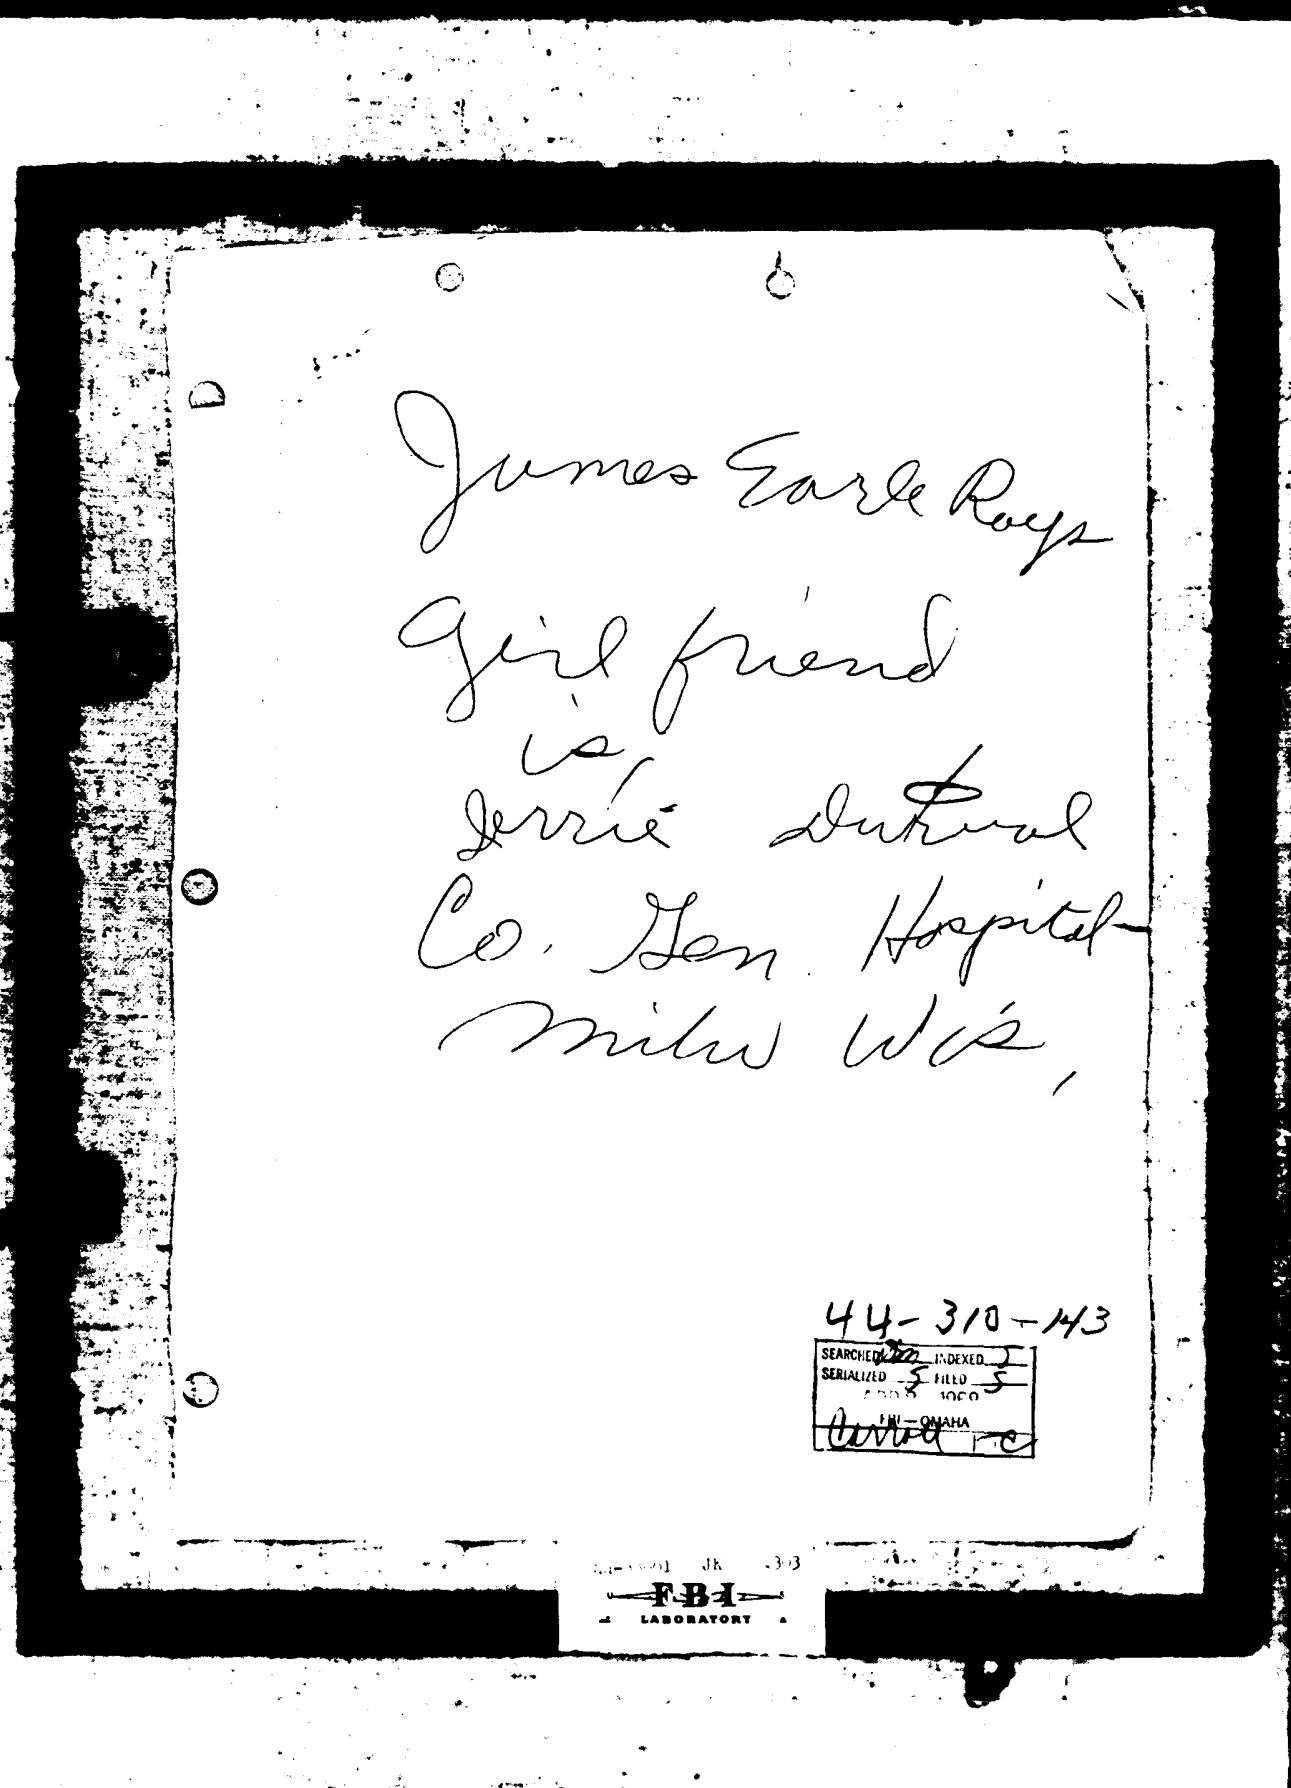 James Earle Rays
Girl friend
is
Jerrie
Co. Gen. Hospital
Milw Wis,
44-310-143
SEARCHED INDEXED
SERIALIZED S FILED S
FBI - OMAHA
Carroll
JK
FBI
LABORATORY